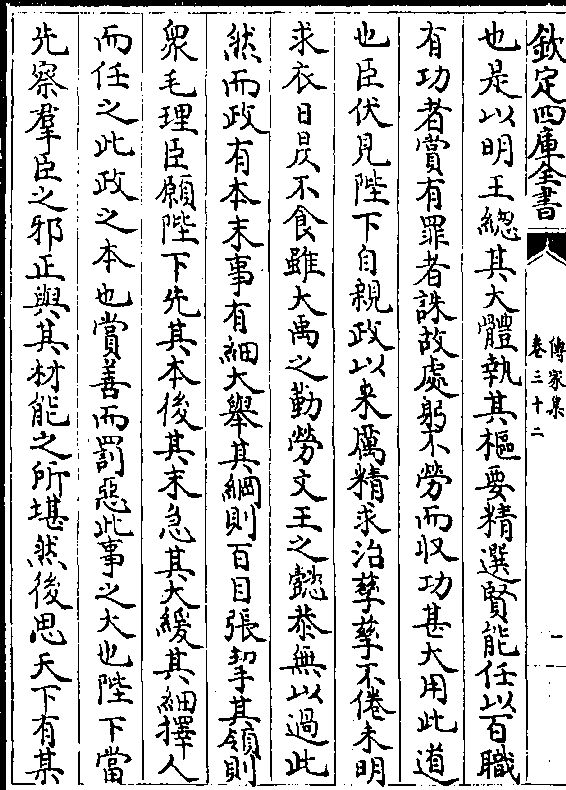 欽定四庫全書
傳家集
卷三十二
也是以明王總其大體執其樞要精選賢能任以百職
有功者賞有罪者誅故處躬不勞而収功甚大用此道
也臣伏見陛下自親政以来厲精求治孳孳不倦未明
求衣日昃不食雖大禹之勤勞文王之懿恭無以過此
然而政有本末事有細大舉其綱則百目張挈其領則
衆毛理臣願陛下先其本後其末急其大緩其細擇人
而任之此政之本也賞善而罰惡此事之大也陛下當
先察羣臣之邪正與其材能之所堪然後思天下有某